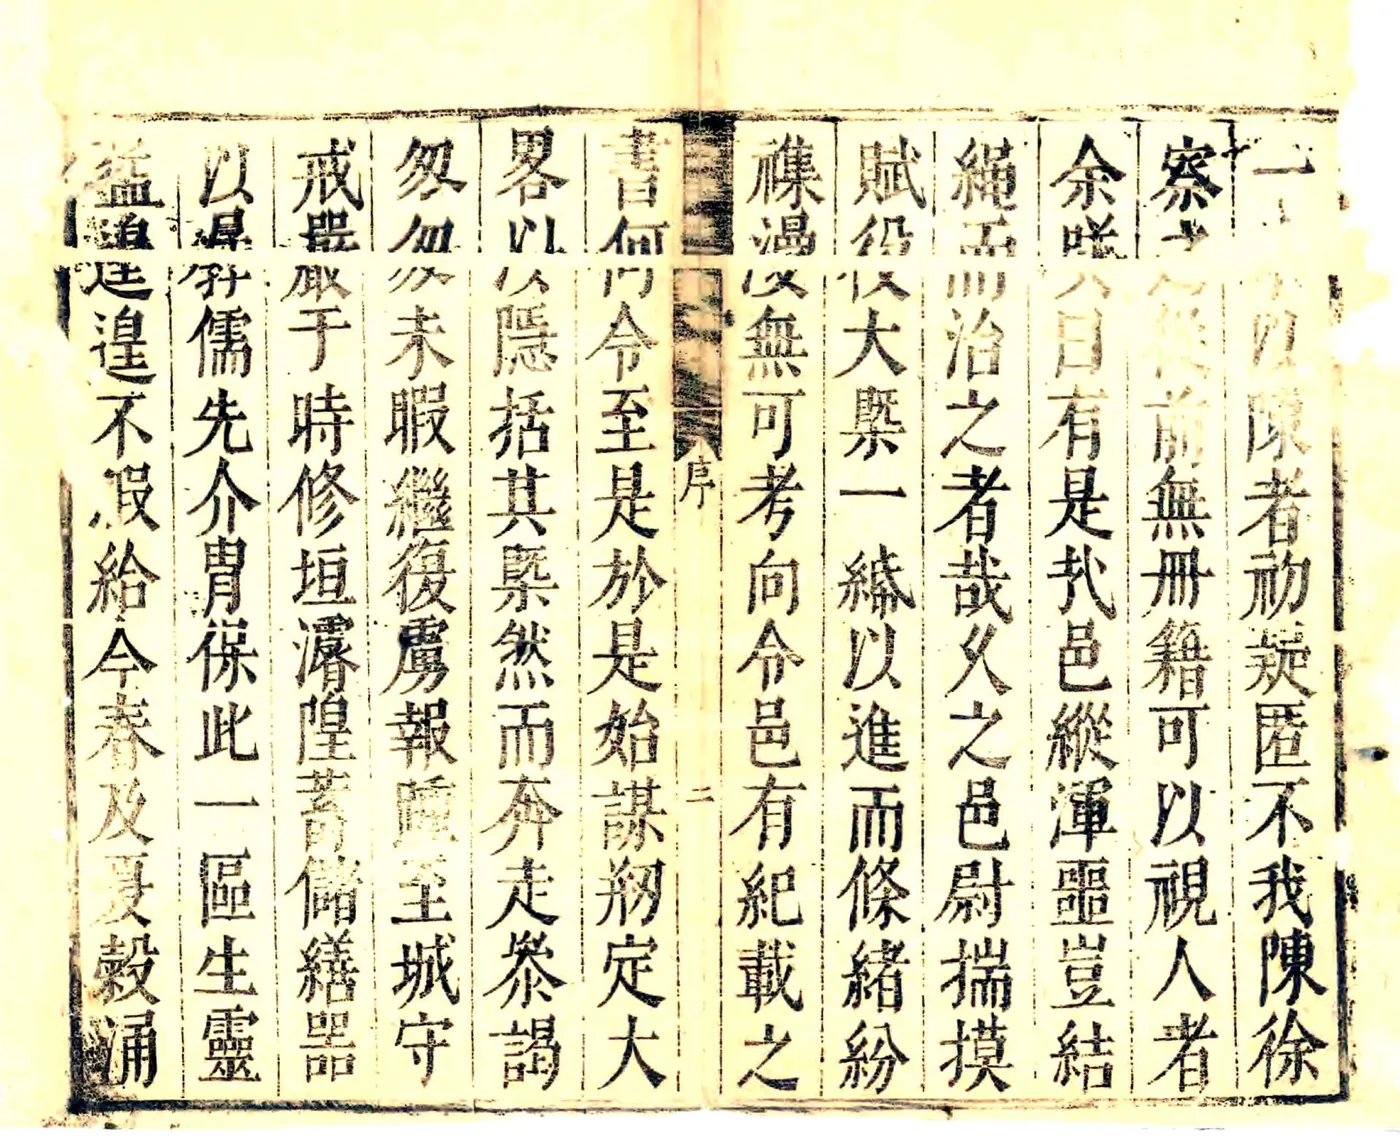 一以陳者初疑匿不我陳徐
察之從前無冊籍可以視人者
余咲曰有是㢤邑縱渾噩豈結
繩而治之者哉乆之邑尉揣摸
賦役大槩一綈以進而條緒紛
襍漫無可考向令邑有紀載之
書何令至是於是始謀剏定大
畧以隱括其槩然而奔走叅謁
匆匆未暇繼復虜報踵至城守
戒嚴于時修垣濬隍蓄儲繕器
以偹儒先介冑保此一區生靈
遑遑不暇給今春及夏穀涌
序
二